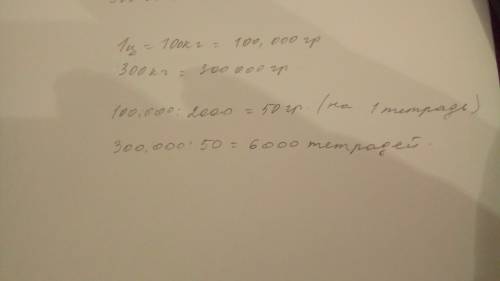 1ц = 100кг = 100,000 гр
300кг = 300 000 гр
100,000 : 2000 = 50 гр (на 1 тетрадь)
300,000 : 50 = 6000 тетрадей.